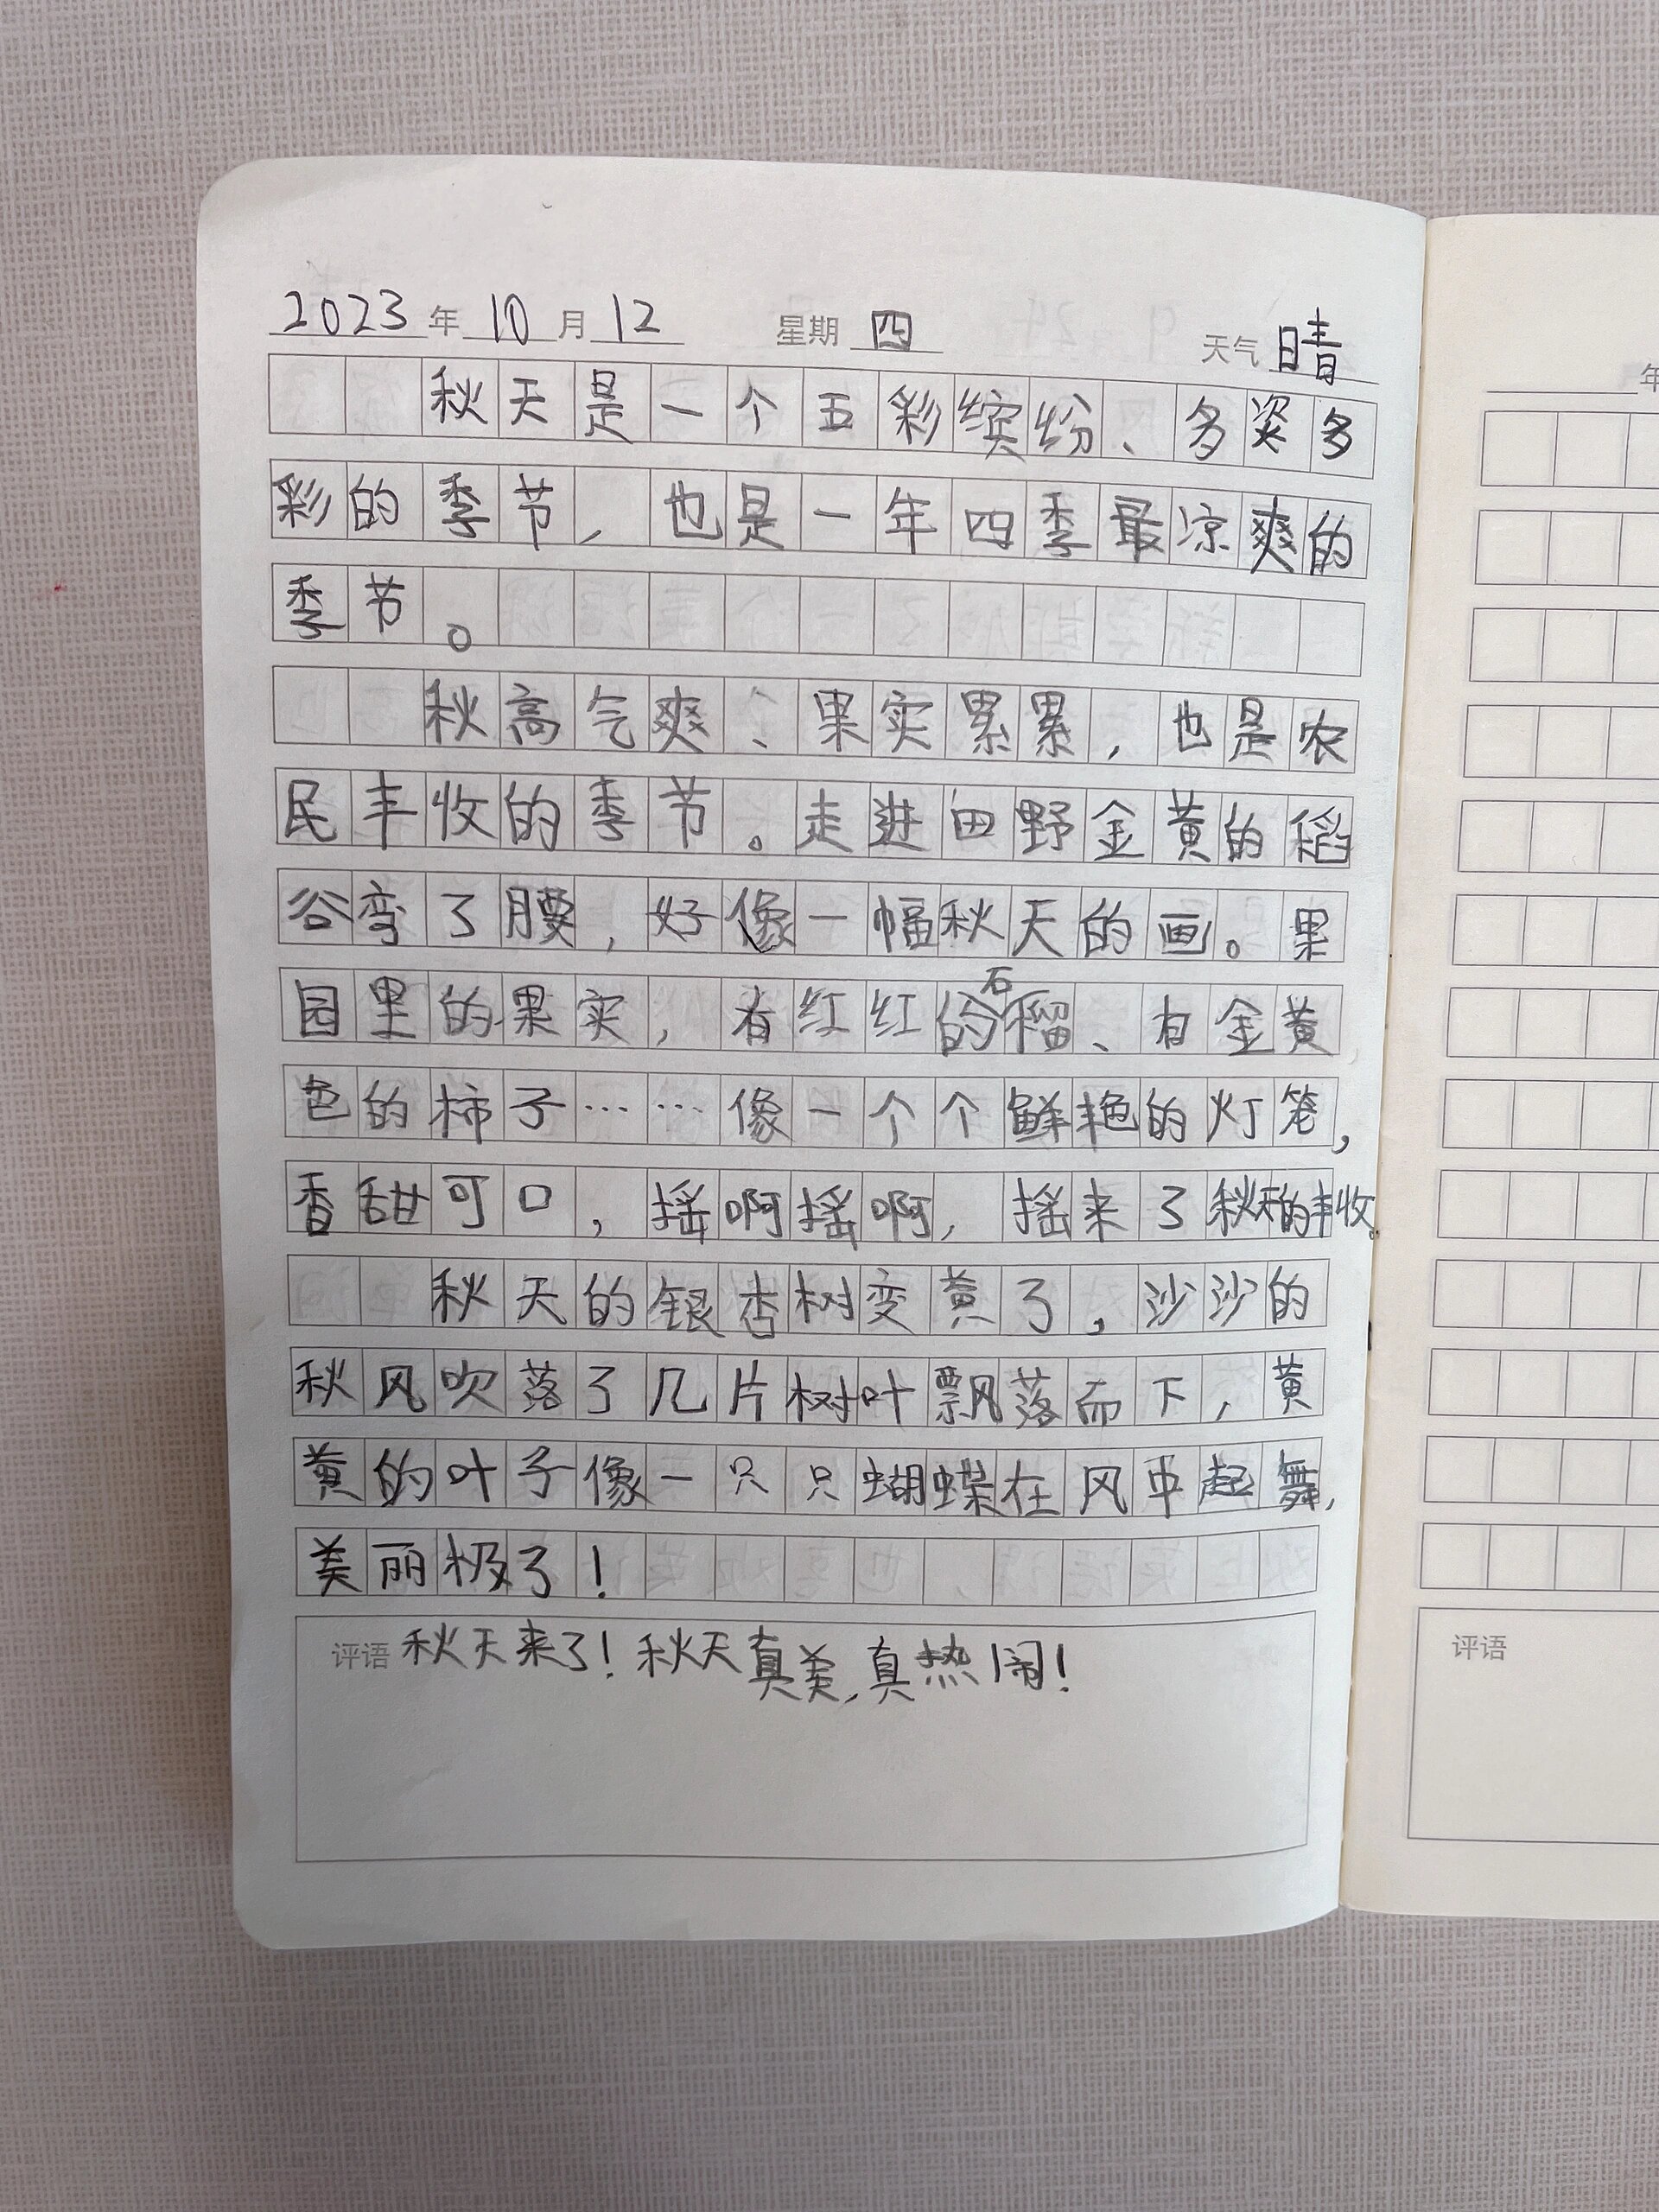 2023年10月12 星期四 天气晴
秋天是一个五彩缤纷、多姿多
彩的季节，也是一年四季最凉爽的
季节。
秋高气爽、果实累累，也是农
民丰收的季节。走进田野金黄的稻
谷弯了腰，好像一幅秋天的画。果
园里的果实，有红红的石榴、有金黄
色的柿子……像一个个鲜艳的灯笼，
香甜可口，摇啊摇啊，摇来了秋天的丰收。
秋天的银杏树变黄了，沙沙的
秋风吹落了几片树叶飘落而下，黄
黄的叶子像一只只蝴蝶在风中起舞，
美丽极了！
评语 秋天来了！秋天真美，真热闹！
年
评语